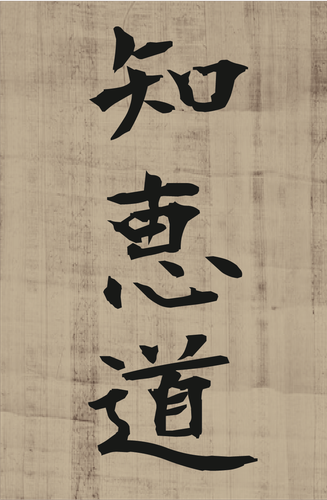 知恵道